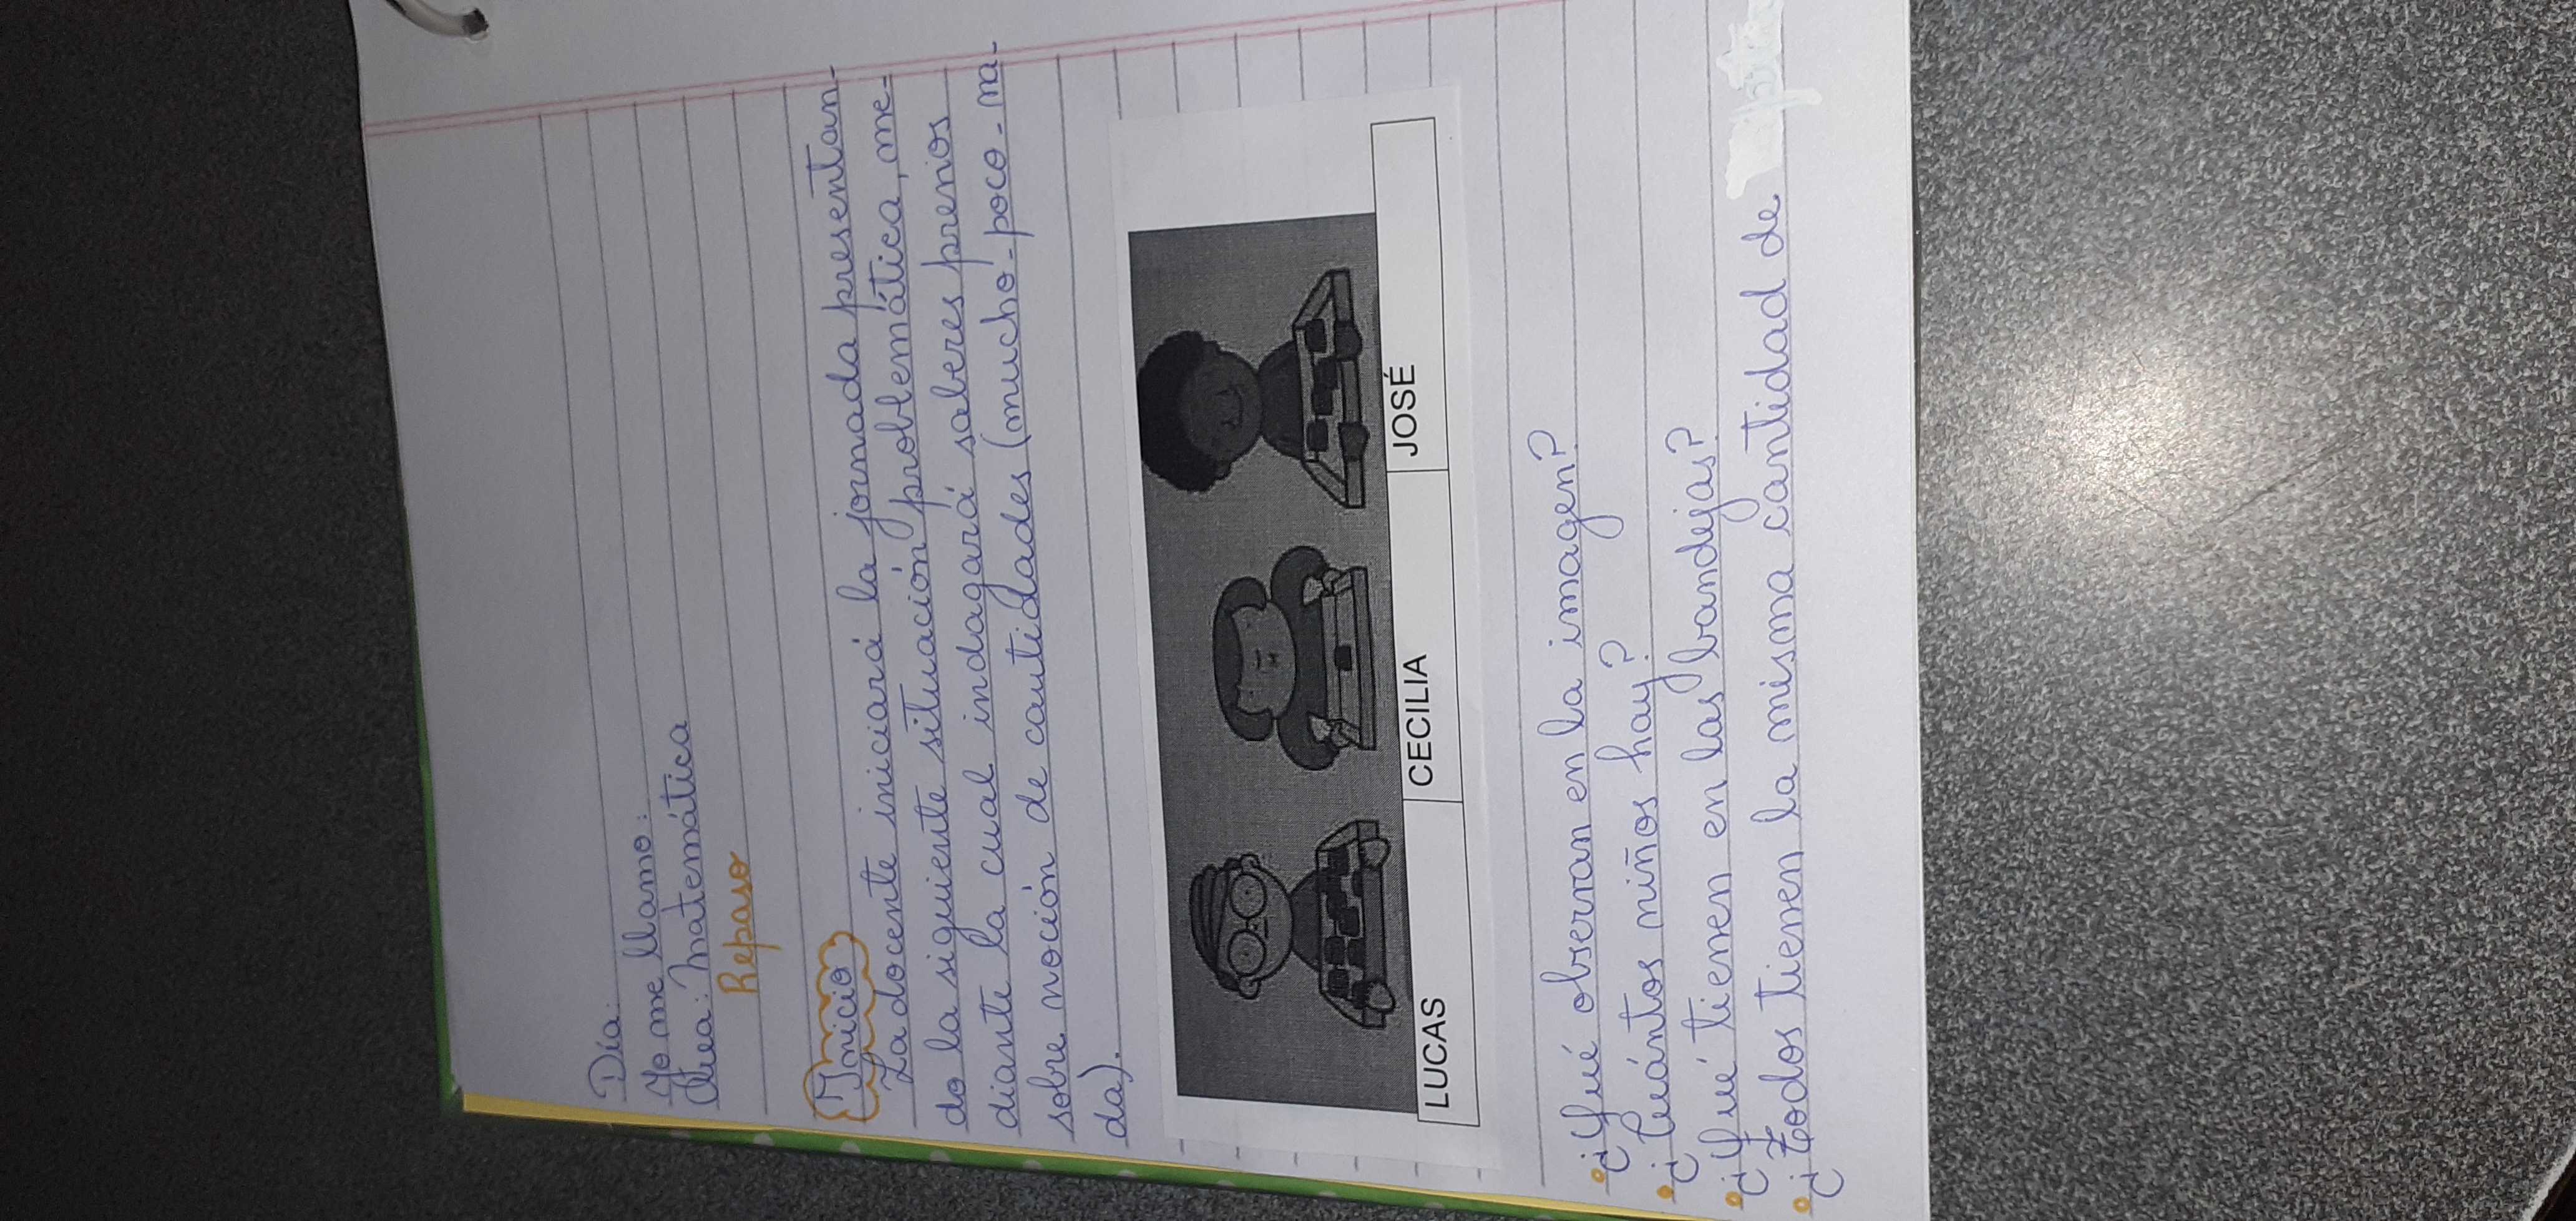 Día:
Yo me llamo:
Área: Matemática
Repaso
Inicio
La docente iniciará la jornada presentan-
do la siguiente situación problemática, me-
diante la cual indagará saberes previos
sobre noción de cantidades (mucho-poco-na-
da).
LUCAS CECILIA JOSÉ
¿Qué observan en la imagen?
¿Cuántos niños hay?
¿Qué tienen en las bandejas?
¿Todos tienen la misma cantidad de